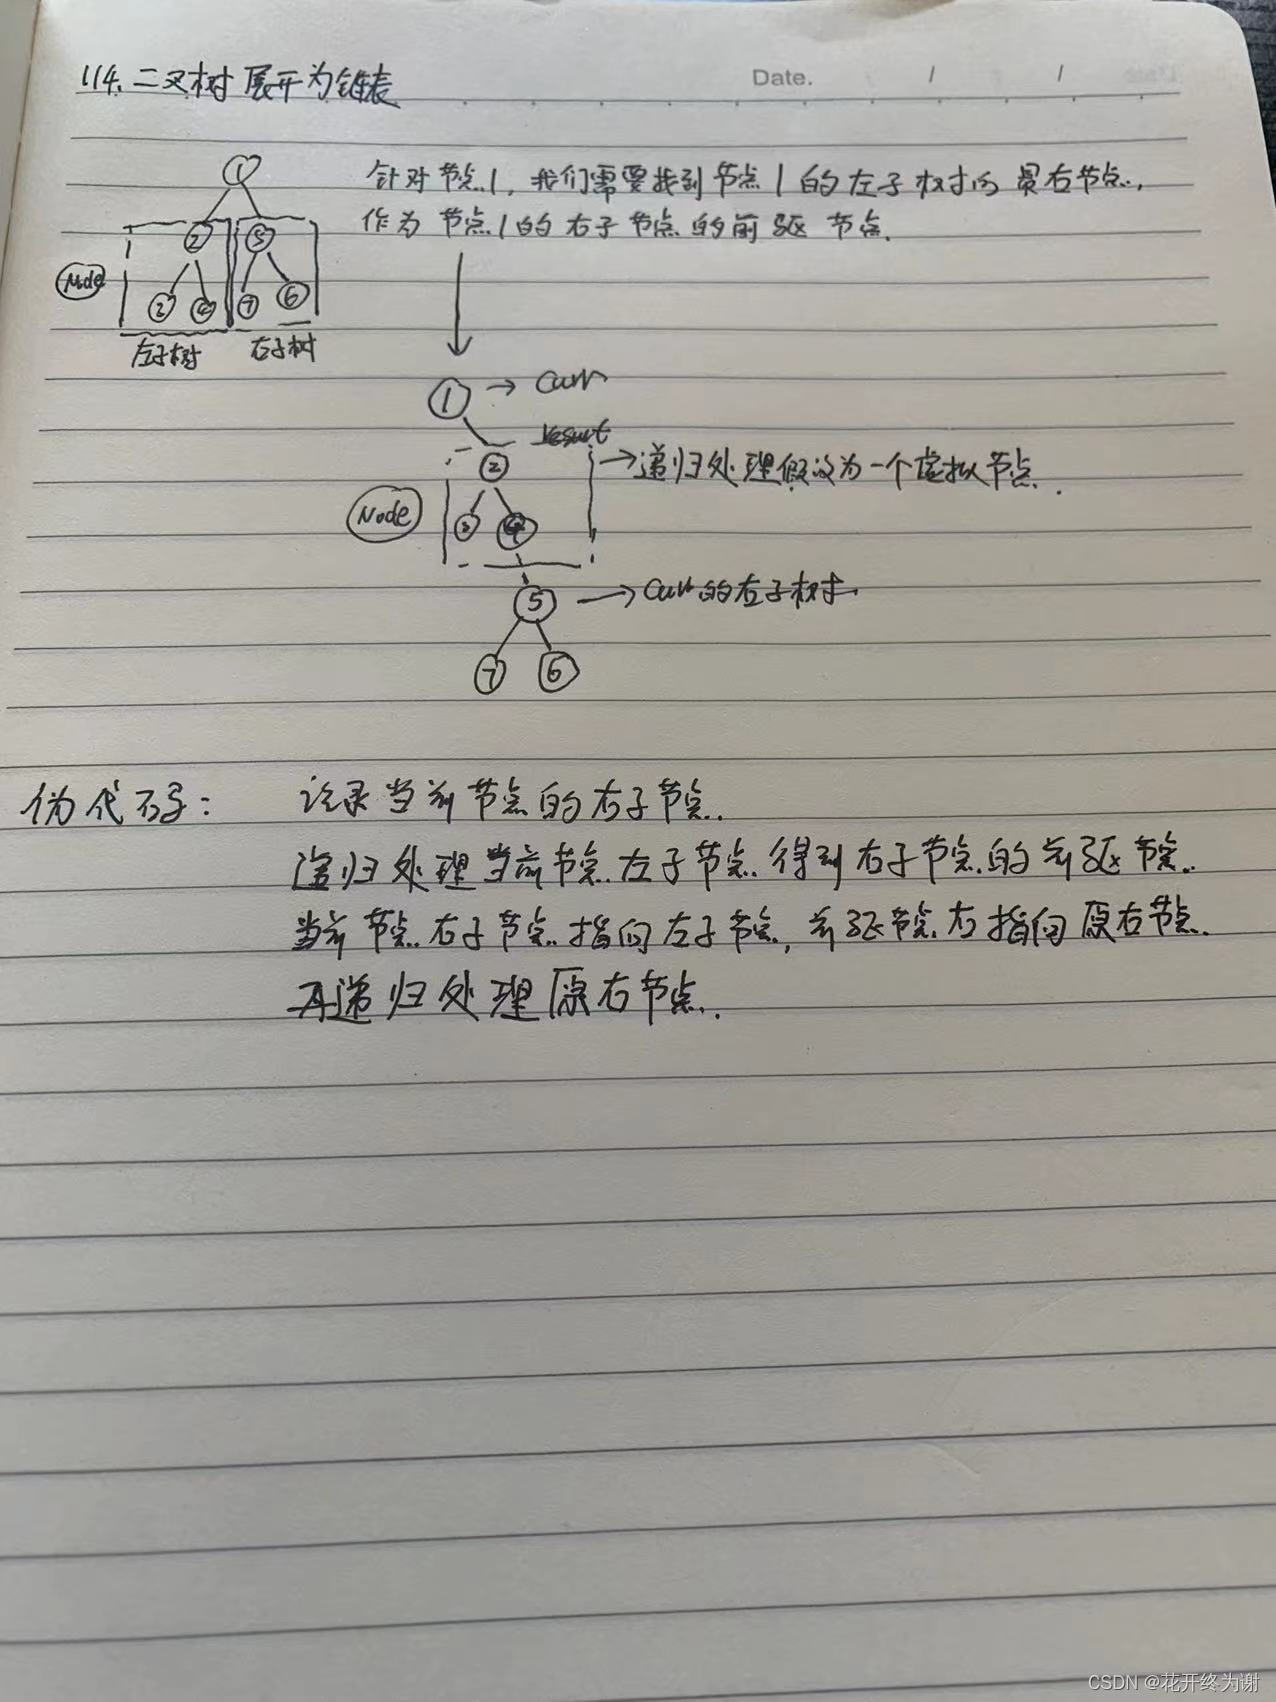 114. 二叉树展开为链表
Date. / /
1
针对节点1，我们需要找到节点1的左子树的最右节点，
作为节点1的右子节点的前驱节点.
2 5
Node
2 4 7 6
左子树 右子树
1 → Curr
2 → 递归处理假设为一个虚拟节点.
Node
3 4
5 → Curr的右子树.
7 6
伪代码： 记录当前节点的右子节点.
递归处理当前节点左子节点得到右子节点的前驱节点.
当前节点右子节点指向左子节点，前驱节点右指向原右节点.
再递归处理原右节点.
CSDN @花开终为谢